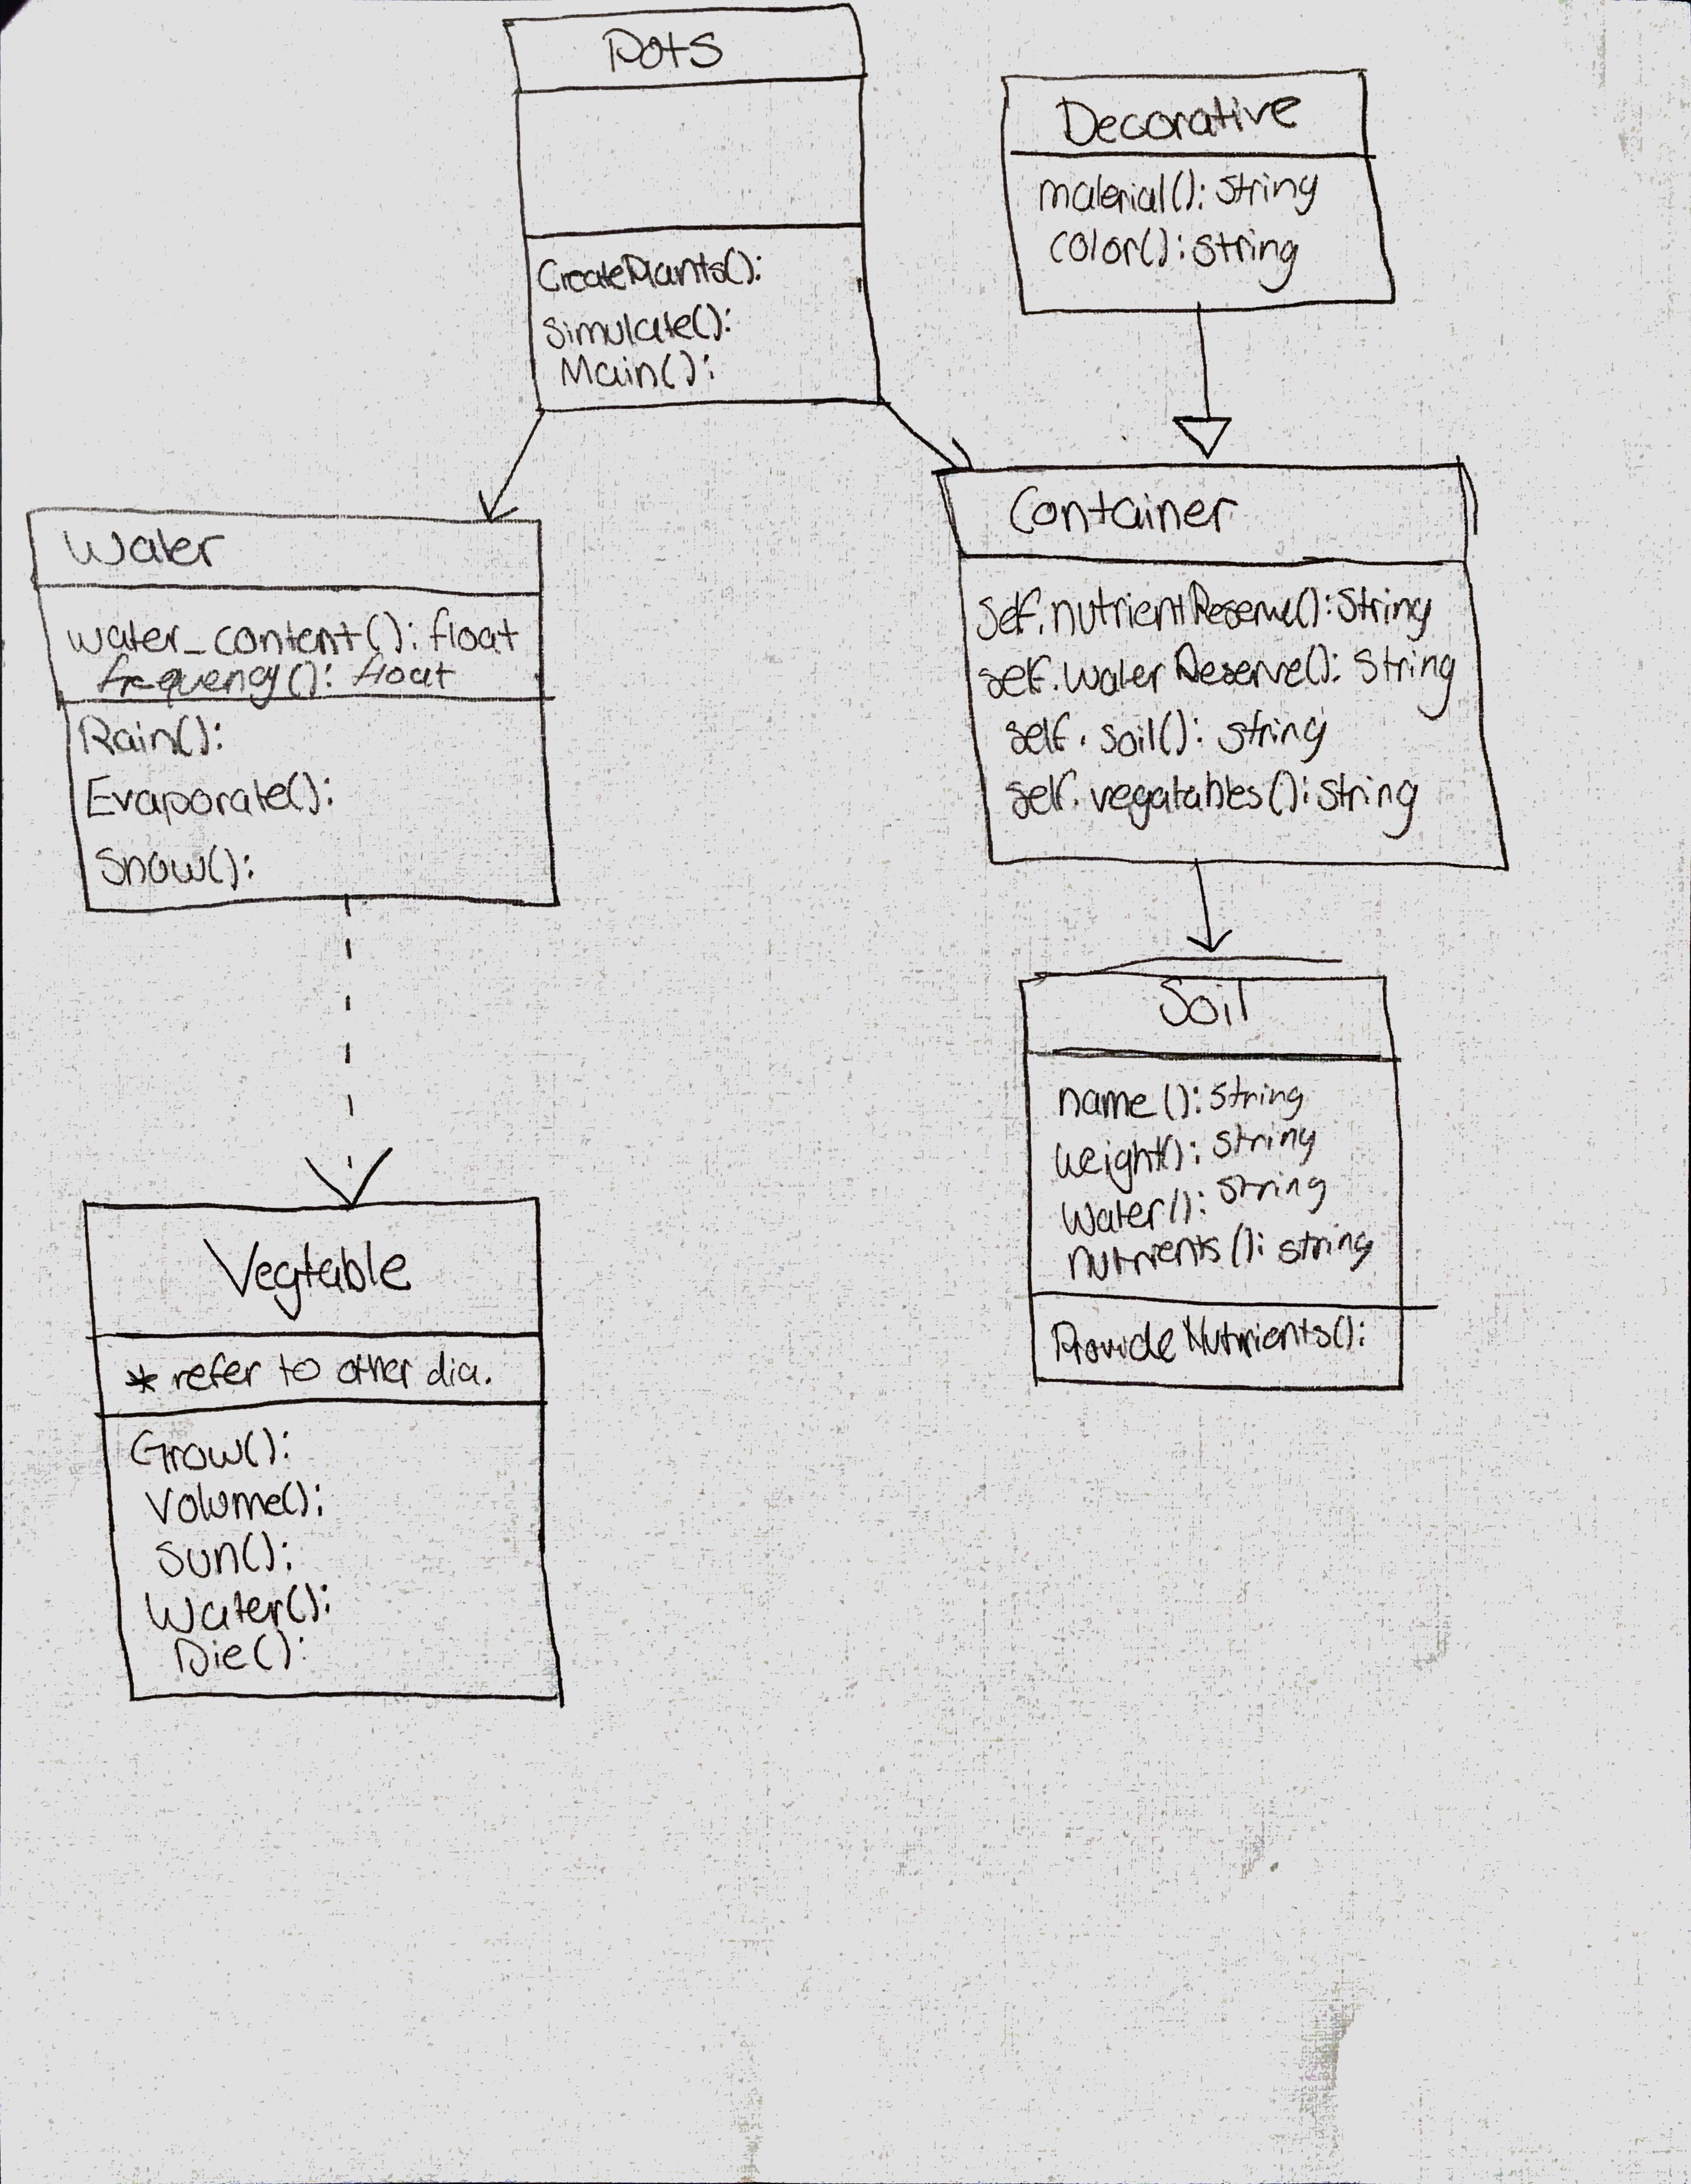 Pots
CreatePlants():
Simulate():
Main():
Decorative
material(): String
color(): String
Water
water_content(): float
frequency(): float
Rain():
Evaporate():
Snow():
Container
self.nutrientReserve(): String
self.waterReserve(): String
self.soil(): string
self.vegatables(): String
Soil
name(): String
weight(): string
Water(): string
nutrients(): string
Provide Nutrients():
Vegtable
* refer to other dia.
Grow():
Volume():
Sun():
Water():
Die():